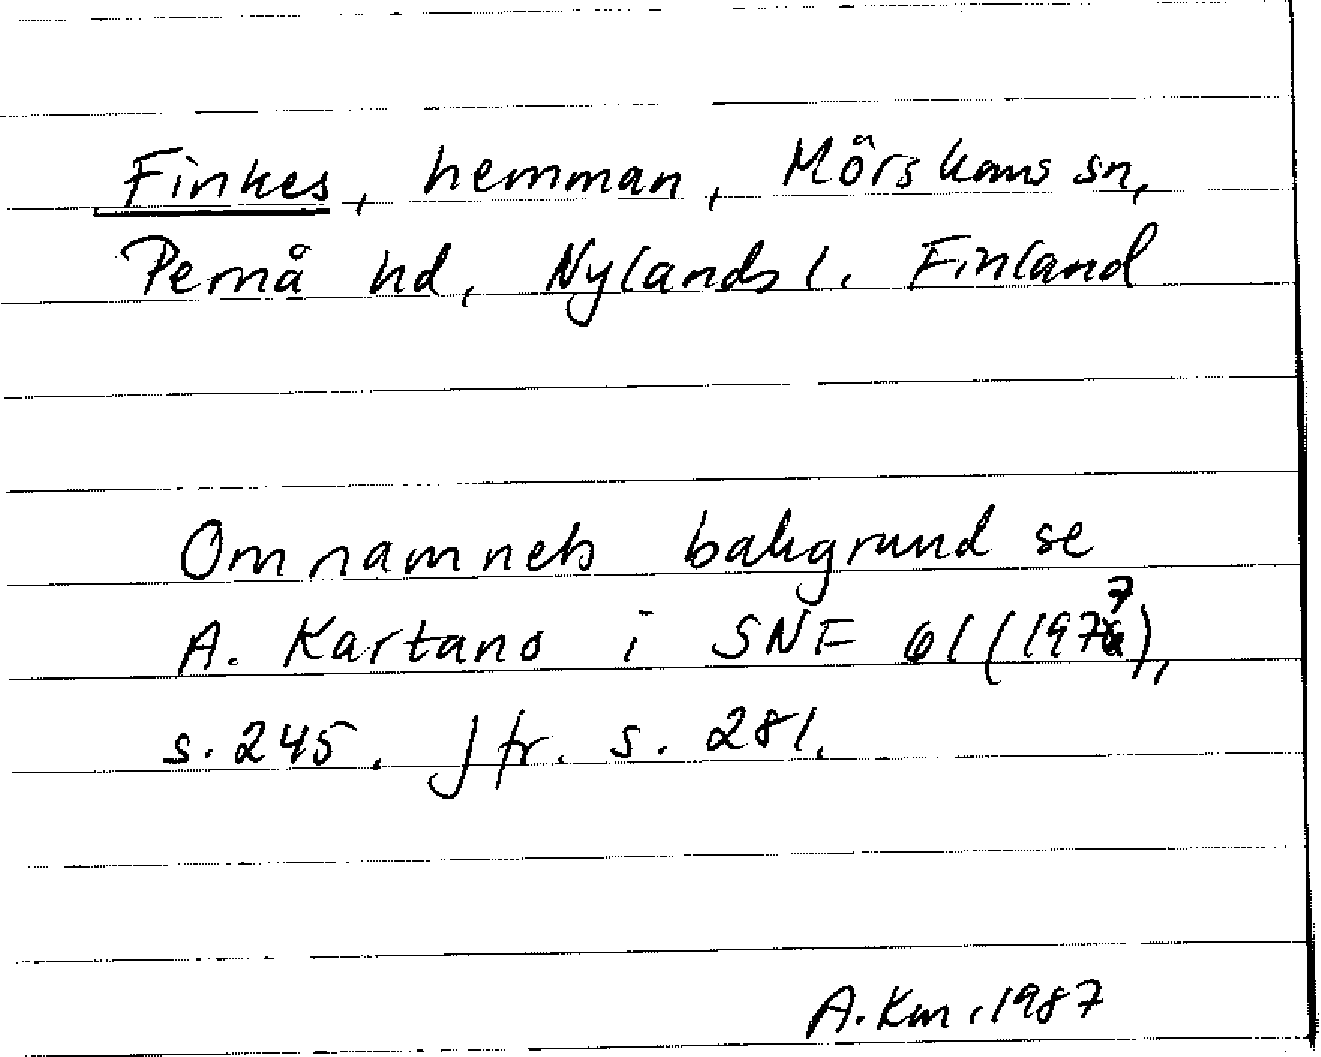 Finkes, hemman, Mörskoms sn,
Pernå hd, Nylands l. Finland
Om namnets bakgrund se
A. Kartano i SNF 61 (1977),
s. 245. Jfr. s. 281.
A. Km. 1987